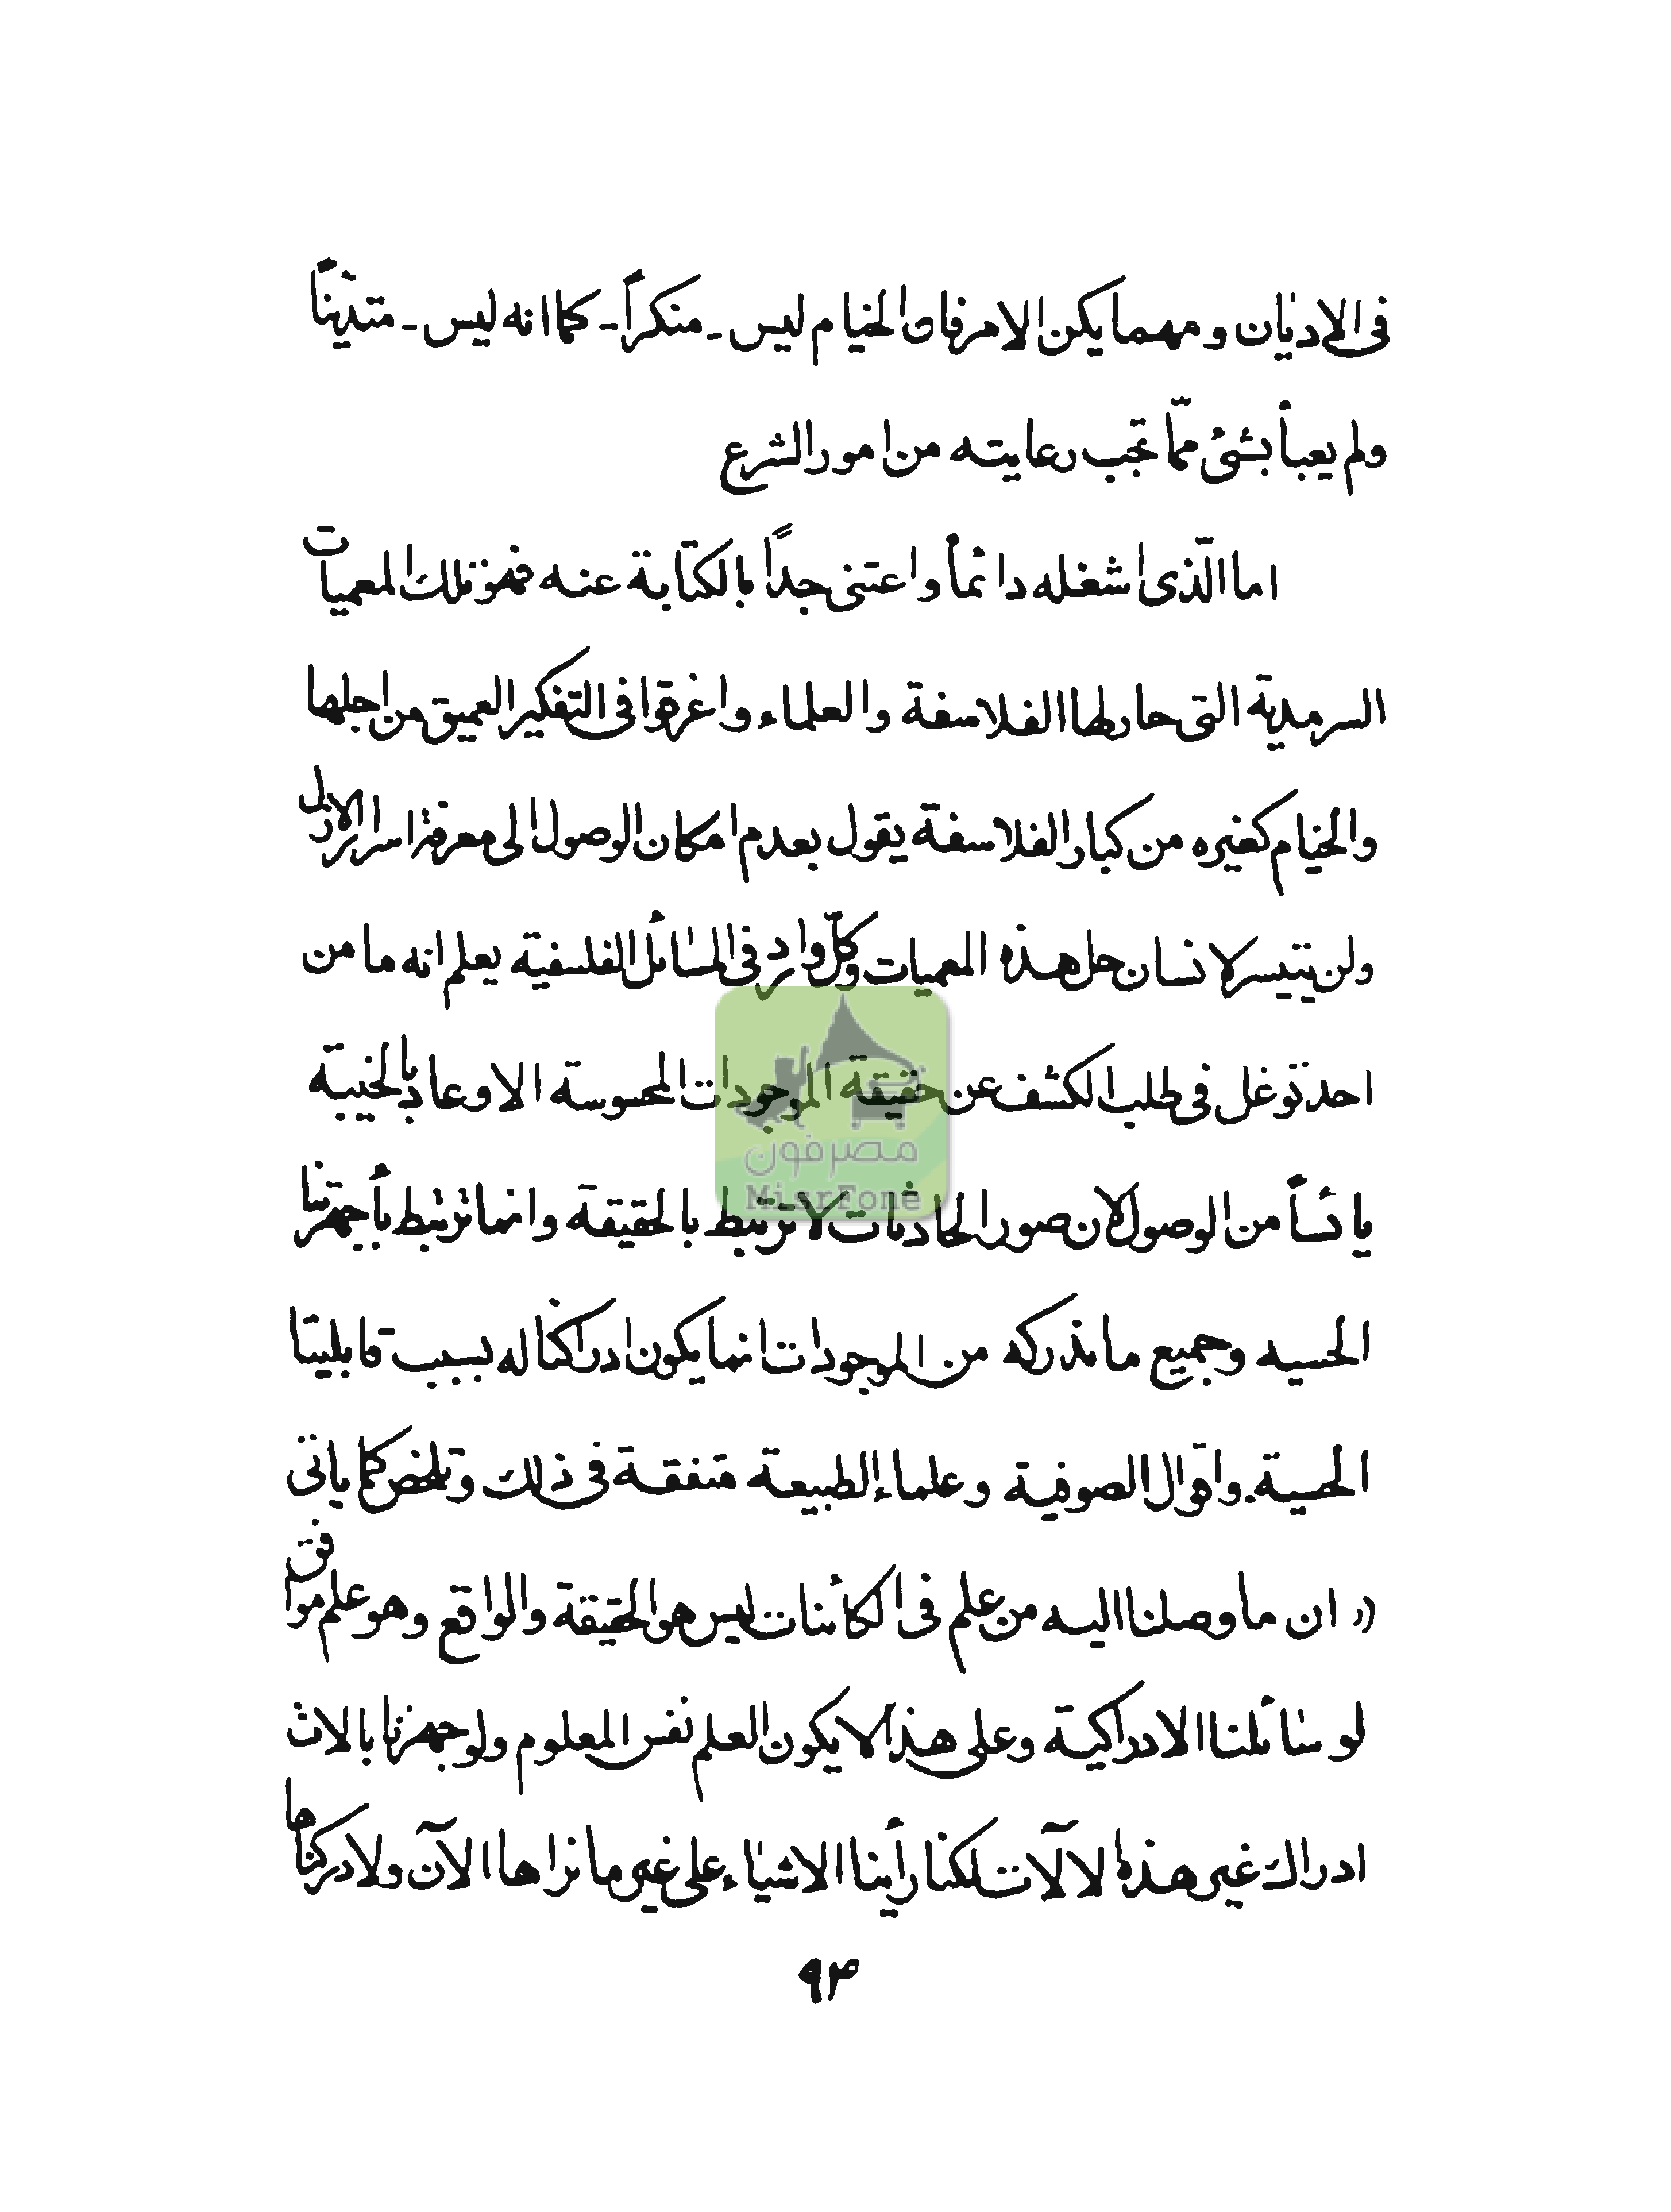 فى الاديان ومهما يكن الامر فان الخيام ليس ـ منكراً ـ كما انه ليس ـ متديناً
ولم يعبأ بشئ ممّا تجب رعايته من امور الشرع
اما الّذى اشغله دائماً واعتنى جداً بالكتابة عنه فهو تلك المعميات
السرمدية التى حار لها الفلاسفة والعلماء واغرقوا فى التفكير العميق من اجلها
والخيام كغيره من كبار الفلاسفة يقول بعدم امكان الوصول الى معرفة اسرار الازل
ولن يتيسر لانسان حل هذه المعميات وكلّ وارد فى المسائل الفلسفية يعلم انه ما من
احد توغل فى طلب الكشف عن حقيقة الموجودات المحسوسة الا وعاد بالخيبة
يائساً من الوصول لان صور الحادثات لا ترتبط بالحقيقة وانما ترتبط بأجهزتنا
الحسيه وجميع ما ندركه من الموجودات انما يكون ادراكنا له بسبب قابليتنا
الحسية. واقوال الصوفية وعلماء الطبيعة متفقة فى ذلك وتلخص كما ياتى
« ان ما وصلنا اليه من علم فى الكائنات ليس هو الحقيقة والواقع وهو علم موافق
لوسائلنا الادراكية وعلى هذا لا يكون العلم نفس المعلوم ولو جهزنا بالات
ادراك غير هذه الالآت لكنا رأينا الاشياء على غير ما نراها الآن ولادركناها
٩٤
مصرفون
MisrFone